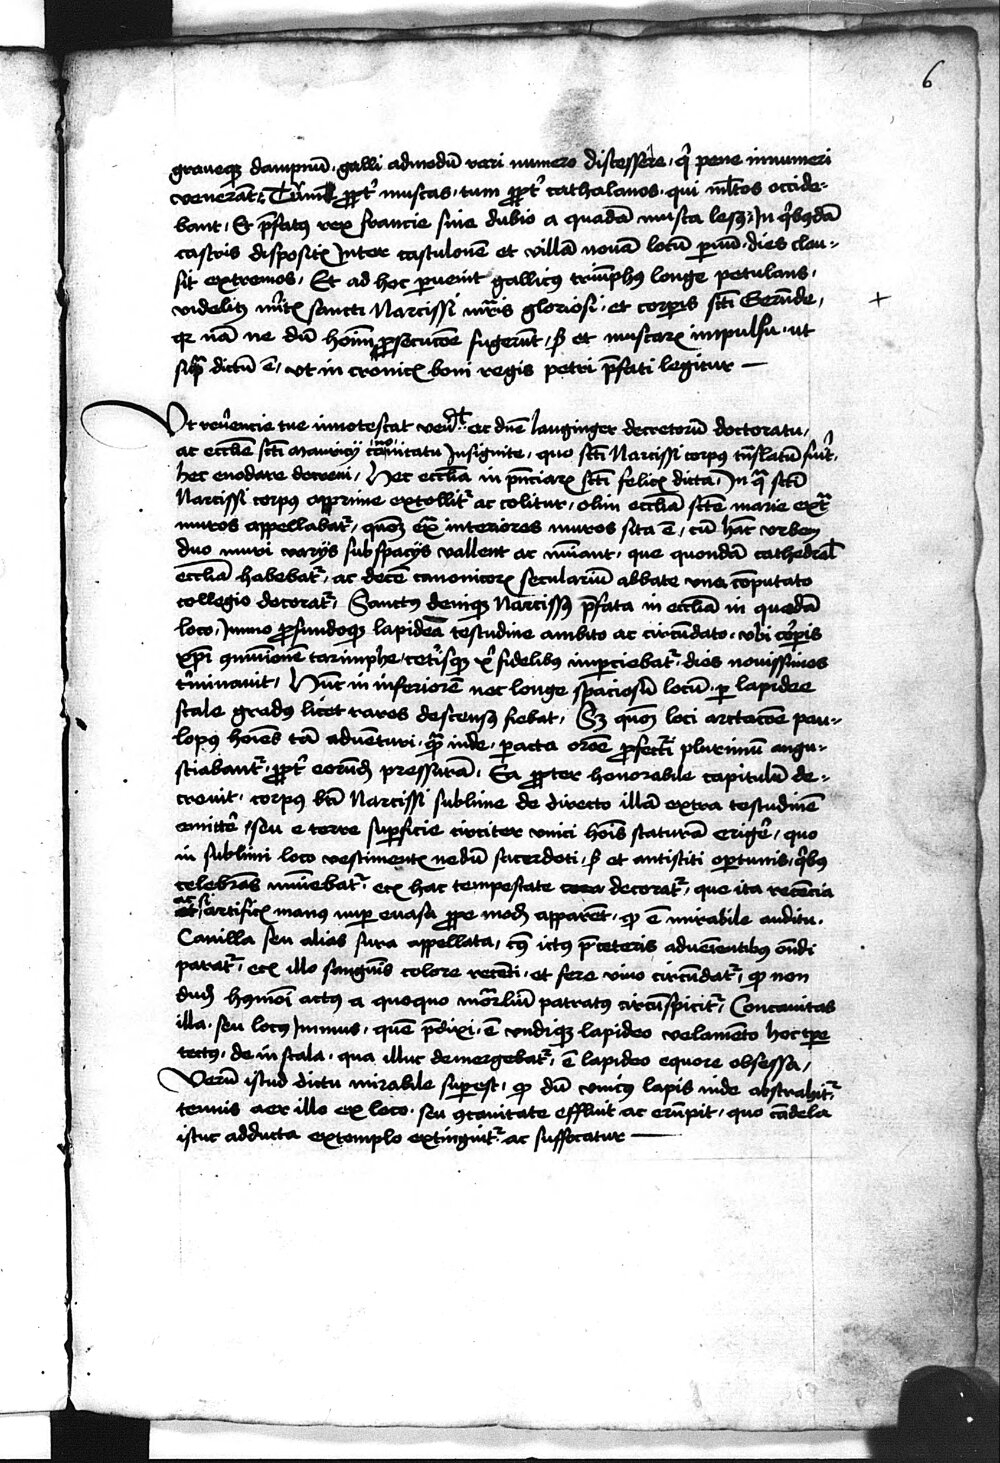 6
graveq dampnū galli admodū rari numero discessere, q̄ pene innumeri
venerāt, Tum ꝓpt muscas, tum ꝓpt cathalanos, qui ml̄tos occide-
bant, Et p̄fatꝰ rex francie sine dubio a quadā musca lesꝰ, In q̄bꝰdā
castris dispositꝭ Inter castulonē et villā novā locū dies clau-
sit extremos, Et ad hoc ꝑvenit gallicꝰ triūphꝰ longe petulans,
videlicꝫ sancti Narcissi mr̄is gloriosi, et corpis sc̄ti Gerūde, +
nā ne dū hoīm ꝓsecucōe fugerūt, sꝫ et muscarꝝ impulsu ut
sup̄ dictū ē, ut in cronicꝭ boni regis petri p̄fati legitur —
Ut rev̄encie tue innotescat etc dn̄e Lauginger decretorū doctoratu,
ac eccl̄ie sc̄ti Mauricij canonicatu Insignite, quo sc̄ti Narcissi corpus trn̄slatū fuit,
hec enodare decrevi, Hec eccl̄ia in sc̄ti felicꝭ dicta, In q̄ sc̄ti
Narcissi corpus apprime extollit ac colitur, olim eccl̄ia sc̄te marie ext̄
muros appellabat, quoꝫ ext̄ interiores muros sita ē, cū hāc urbem
duo muri varijs sub spacijs vallent ac muniant, que quondā cathedral̄
eccl̄ia habebat, ac decē canonicorꝝ seculariū abbate una cōputato
collegio decorat, Sanctus deniqꝫ Narcissꝰ p̄fata in eccl̄ia in quodā
loco, Immo ꝓfundoqꝫ lapidea testudine ambito ac circūdato, ubi corpis
xp̄i fidelibꝰ impciebat, dies novissimos
t̄minavit, Hūc in inferiorē nec longe spaciosū locū ꝑ lapidee
scale gradꝰ licet raros descensꝰ fiebat, Sꝫ quoꝫ loci arctacōe pau-
lopꝰ hoīes tā adventuri, inde, ꝑacta orōe ꝓfecti plurimū angu-
stiabant, ꝓpt eorūdē pressurā, Ea ꝓpter honorabile capitulū de-
crevit, corpus bt̄i Narcissi sublime de directo illā extra testudinē
emitte, seu e terre supficie circiter unici hoīs staturā erige, quo
in sublimi loco vestimentꝭ nedū sacerdoti, sꝫ et antistiti oportunis, q̄bus
celebrās muniebat, hac tempestate decorat, que ita recencia
ac si artificꝭ manꝰ nuꝑ evasa ꝓpe modū apparēt, qꝫ ē mirabile auditu,
Cavilla seu alias sura appellata, cuꝰ ictus p̄ ceteris adveīentibus on̄di
parat, illo sanguīs colore recēti, et fere vivo circūdat, qꝫ non
dudū hꝰmōi actus a quoquo mor̄liū patratus circūspicit, Concavitas
illa, seu locꝰ Immus, quē p̄dixi, ē undiqꝫ lapideo velamēto hoc tpe
tectus, dein scala, qua illuc demergebat, ē lapideo equore obsessa,
Verū istud dictu mirabile supest, qꝫ dū unicꝰ lapis inde abstrahit,
tenuis aer illo ex loco, seu ꝯcavitate effluit ac erūpit, quo cādela
istuc adducta extemplo extinguit ac suffocatur —